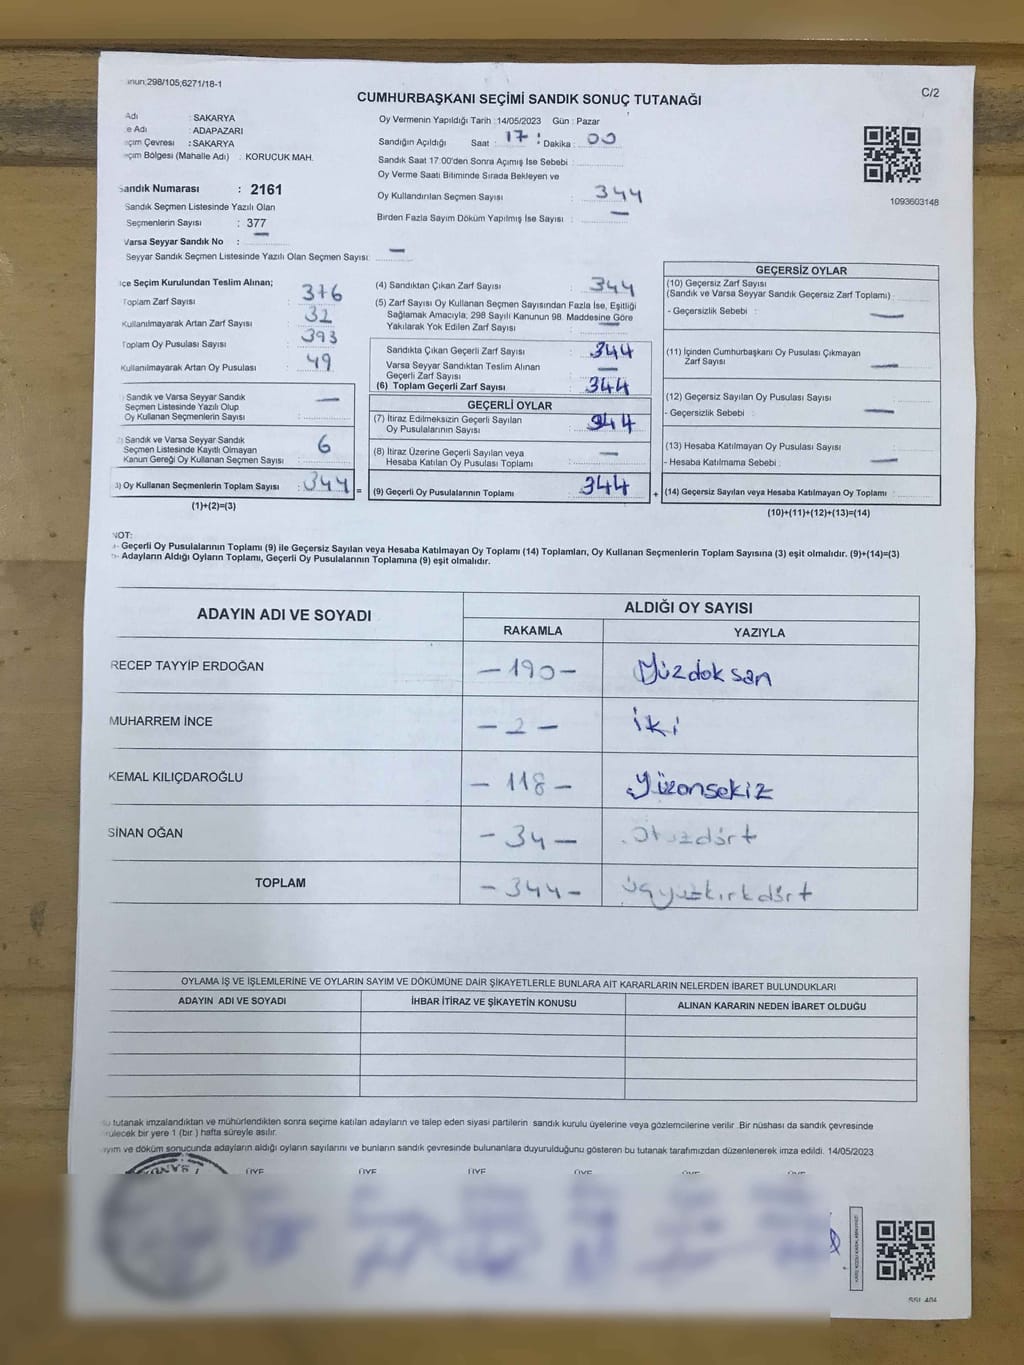 298/105;6271/18-1
C/2
CUMHURBAŞKANI SEÇİMİ SANDIK SONUÇ TUTANAĞI
Adı : SAKARYA
e Adı : ADAPAZARI
çim Çevresi : SAKARYA
çim Bölgesi (Mahalle Adı) : KORUCUK MAH.
Sandık Numarası : 2161
Sandık Seçmen Listesinde Yazılı Olan
Seçmenlerin Sayısı : 377
Varsa Seyyar Sandık No : —
Seyyar Sandık Seçmen Listesinde Yazılı Olan Seçmen Sayısı: —
Oy Vermenin Yapıldığı Tarih : 14/05/2023 Gün : Pazar
Sandığın Açıldığı Saat : 17 : Dakika : 00
Sandık Saat 17:00'den Sonra Açımış İse Sebebi :
Oy Verme Saati Bitiminde Sırada Bekleyen ve
Oy Kullandırılan Seçmen Sayısı : 344
Birden Fazla Sayım Döküm Yapılmış İse Sayısı : —
1093603148
çe Seçim Kurulundan Teslim Alınan;
Toplam Zarf Sayısı : 376
Kullanılmayarak Artan Zarf Sayısı : 32
Toplam Oy Pusulası Sayısı : 393
Kullanılmayarak Artan Oy Pusulası : 49
Sandık ve Varsa Seyyar Sandık
Seçmen Listesinde Yazılı Olup
Oy Kullanan Seçmenlerin Sayısı : —
Sandık ve Varsa Seyyar Sandık
Seçmen Listesinde Kayıtlı Olmayan
Kanun Gereği Oy Kullanan Seçmen Sayısı : 6
3) Oy Kullanan Seçmenlerin Toplam Sayısı : 344 =
(1)+(2)=(3)
(4) Sandıktan Çıkan Zarf Sayısı : 344
(5) Zarf Sayısı Oy Kullanan Seçmen Sayısından Fazla İse, Eşitliği
Sağlamak Amacıyla; 298 Sayılı Kanunun 98. Maddesine Göre
Yakılarak Yok Edilen Zarf Sayısı : —
Sandıkta Çıkan Geçerli Zarf Sayısı : 344
Varsa Seyyar Sandıktan Teslim Alınan
Geçerli Zarf Sayısı : —
(6) Toplam Geçerli Zarf Sayısı : 344
GEÇERLİ OYLAR
(7) İtiraz Edilmeksizin Geçerli Sayılan
Oy Pusulalarının Sayısı : 344
(8) İtiraz Üzerine Geçerli Sayılan veya
Hesaba Katılan Oy Pusulası Toplamı : —
(9) Geçerli Oy Pusulalarının Toplamı : 344 +
GEÇERSİZ OYLAR
(10) Geçersiz Zarf Sayısı
(Sandık ve Varsa Seyyar Sandık Geçersiz Zarf Toplamı) :
- Geçersizlik Sebebi : —
(11) İçinden Cumhurbaşkanı Oy Pusulası Çıkmayan
Zarf Sayısı : —
(12) Geçersiz Sayılan Oy Pusulası Sayısı :
- Geçersizlik Sebebi : —
(13) Hesaba Katılmayan Oy Pusulası Sayısı :
- Hesaba Katılmama Sebebi : —
(14) Geçersiz Sayılan veya Hesaba Katılmayan Oy Toplamı :
(10)+(11)+(12)+(13)=(14)
NOT:
- Geçerli Oy Pusulalarının Toplamı (9) ile Geçersiz Sayılan veya Hesaba Katılmayan Oy Toplamı (14) Toplamları, Oy Kullanan Seçmenlerin Toplam Sayısına (3) eşit olmalıdır. (9)+(14)=(3)
- Adayların Aldığı Oyların Toplamı, Geçerli Oy Pusulalarının Toplamına (9) eşit olmalıdır.
ADAYIN ADI VE SOYADI
ALDIĞI OY SAYISI
RAKAMLA YAZIYLA
RECEP TAYYİP ERDOĞAN —190— Yüzdoksan
MUHARREM İNCE —2— iki
KEMAL KILIÇDAROĞLU —118— yüzonsekiz
SİNAN OĞAN —34— otuzdört
TOPLAM —344— üçyüzkırkdört
OYLAMA İŞ VE İŞLEMLERİNE VE OYLARIN SAYIM VE DÖKÜMÜNE DAİR ŞİKAYETLERLE BUNLARA AİT KARARLARIN NELERDEN İBARET BULUNDUKLARI
ADAYIN ADI VE SOYADI İHBAR İTİRAZ VE ŞİKAYETİN KONUSU ALINAN KARARIN NEDEN İBARET OLDUĞU
tutanak imzalandıktan ve mühürlendikten sonra seçime katılan adayların ve talep eden siyasi partilerin sandık kurulu üyelerine veya gözlemcilerine verilir .Bir nüshası da sandık çevresinde
rülecek bir yere 1 (bir ) hafta süreyle asılır.
ayım ve döküm sonucunda adayların aldığı oyların sayılarını ve bunların sandık çevresinde bulunanlara duyurulduğunu gösteren bu tutanak tarafımızdan düzenlenerek imza edildi. 14/05/2023
ÜYE ÜYE ÜYE ÜYE